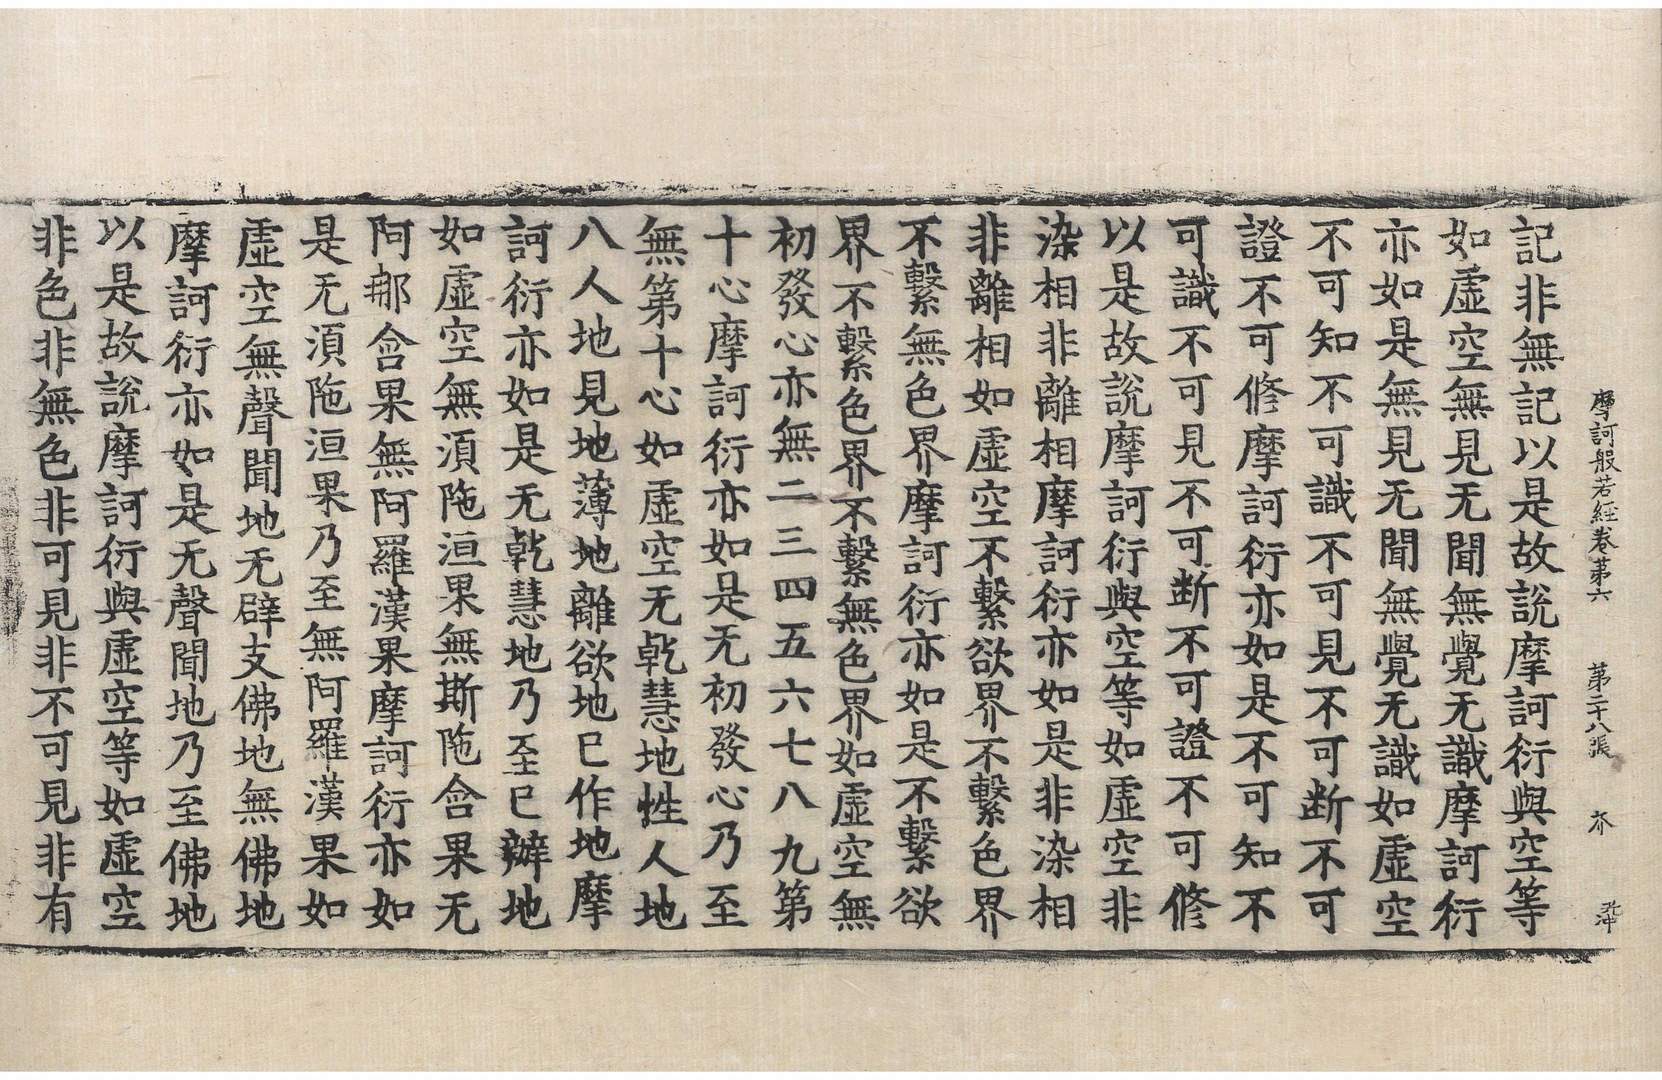 摩訶般若経卷第六　第二十八張　芥
記非無記以是故說摩訶衍與空等
如虛空無見无聞無覺无識摩訶衍
亦如是無見无聞無覺无識如虛空
不可知不可識不可見不可断不可
證不可修摩訶衍亦如是不可知不
可識不可見不可断不可證不可修
以是故說摩訶衍與空等如虛空非
染相非離相摩訶衍亦如是非染相
非離相如虛空不繫欲界不繫色界
不繫無色界摩訶衍亦如是不繫欲
界不繫色界不繫無色界如虛空無
初發心亦無二三四五六七八九第
十心摩訶衍亦如是无初發心乃至
無第十心如虛空无乾慧地性人地
八人地見地薄地離欲地已作地摩
訶衍亦如是无乾慧地乃至已辦地
如虛空無須陁洹果無斯陁含果无
阿那含果無阿羅漢果摩訶衍亦如
是无須陁洹果乃至無阿羅漢果如
虛空無聲聞地无辟支佛地無佛地
摩訶衍亦如是无聲聞地乃至佛地
以是故說摩訶衍與虛空等如虛空
非色非無色非可見非不可見非有